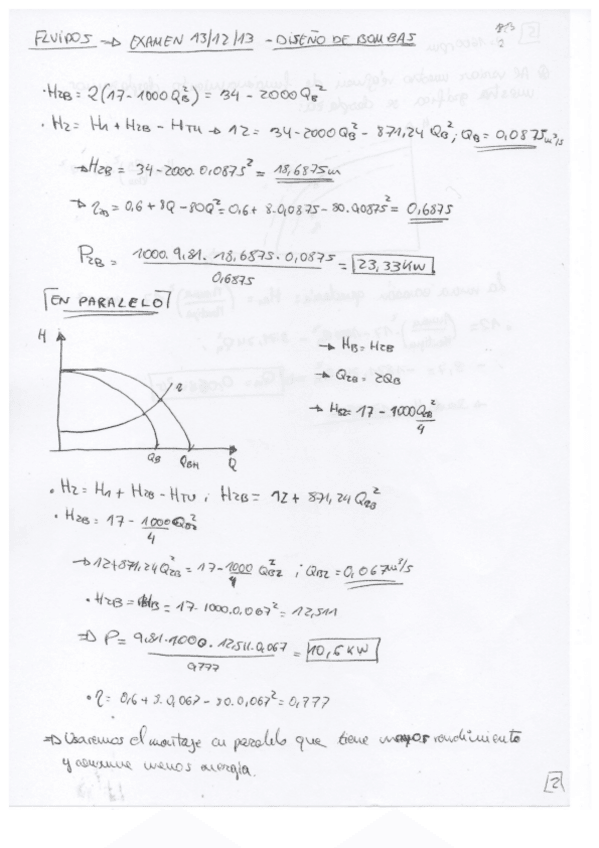 FLUIDOS → EXAMEN 13/12/13 - DISEÑO DE BOMBAS
· H2B = 2(17-1000QB²) = 34 - 2000QB²
· H2 = H1 + H2B - HTU → 12 = 34-2000QB² - 871,24 QB² ; QB = 0,0875 m³/s
→ H2B = 34-2000.0,0875² = 18,6875m
→ η2B = 0,6 + 8Q - 80Q² = 0,6 + 8.0,0875 - 80.0,0875² = 0,6875
P2B = 1000.9,81.18,6875.0,0875 / 0,6875 = 23,33KW
EN PARALELO
H
→ HB = H2B
→ Q2B = 2QB
QB QBH Q
· H2 = H1 + H2B - HTU ; H2B = 12 + 871,24 Q2B²
· H2B = 17 - 1000QB2² / 4
→ 12+871,24Q2B² = 17-1000/4 QB2² ; QB2 = 0,067m³/s
= 17-1000.0,067² = 12,511
⇒ P = 9,81.1000.12,511.0,067 / 0,777 = 10,6 KW
⇒ Usaremos el montaje en paralelo que tiene mayor rendimiento
y consume menos energía.
2